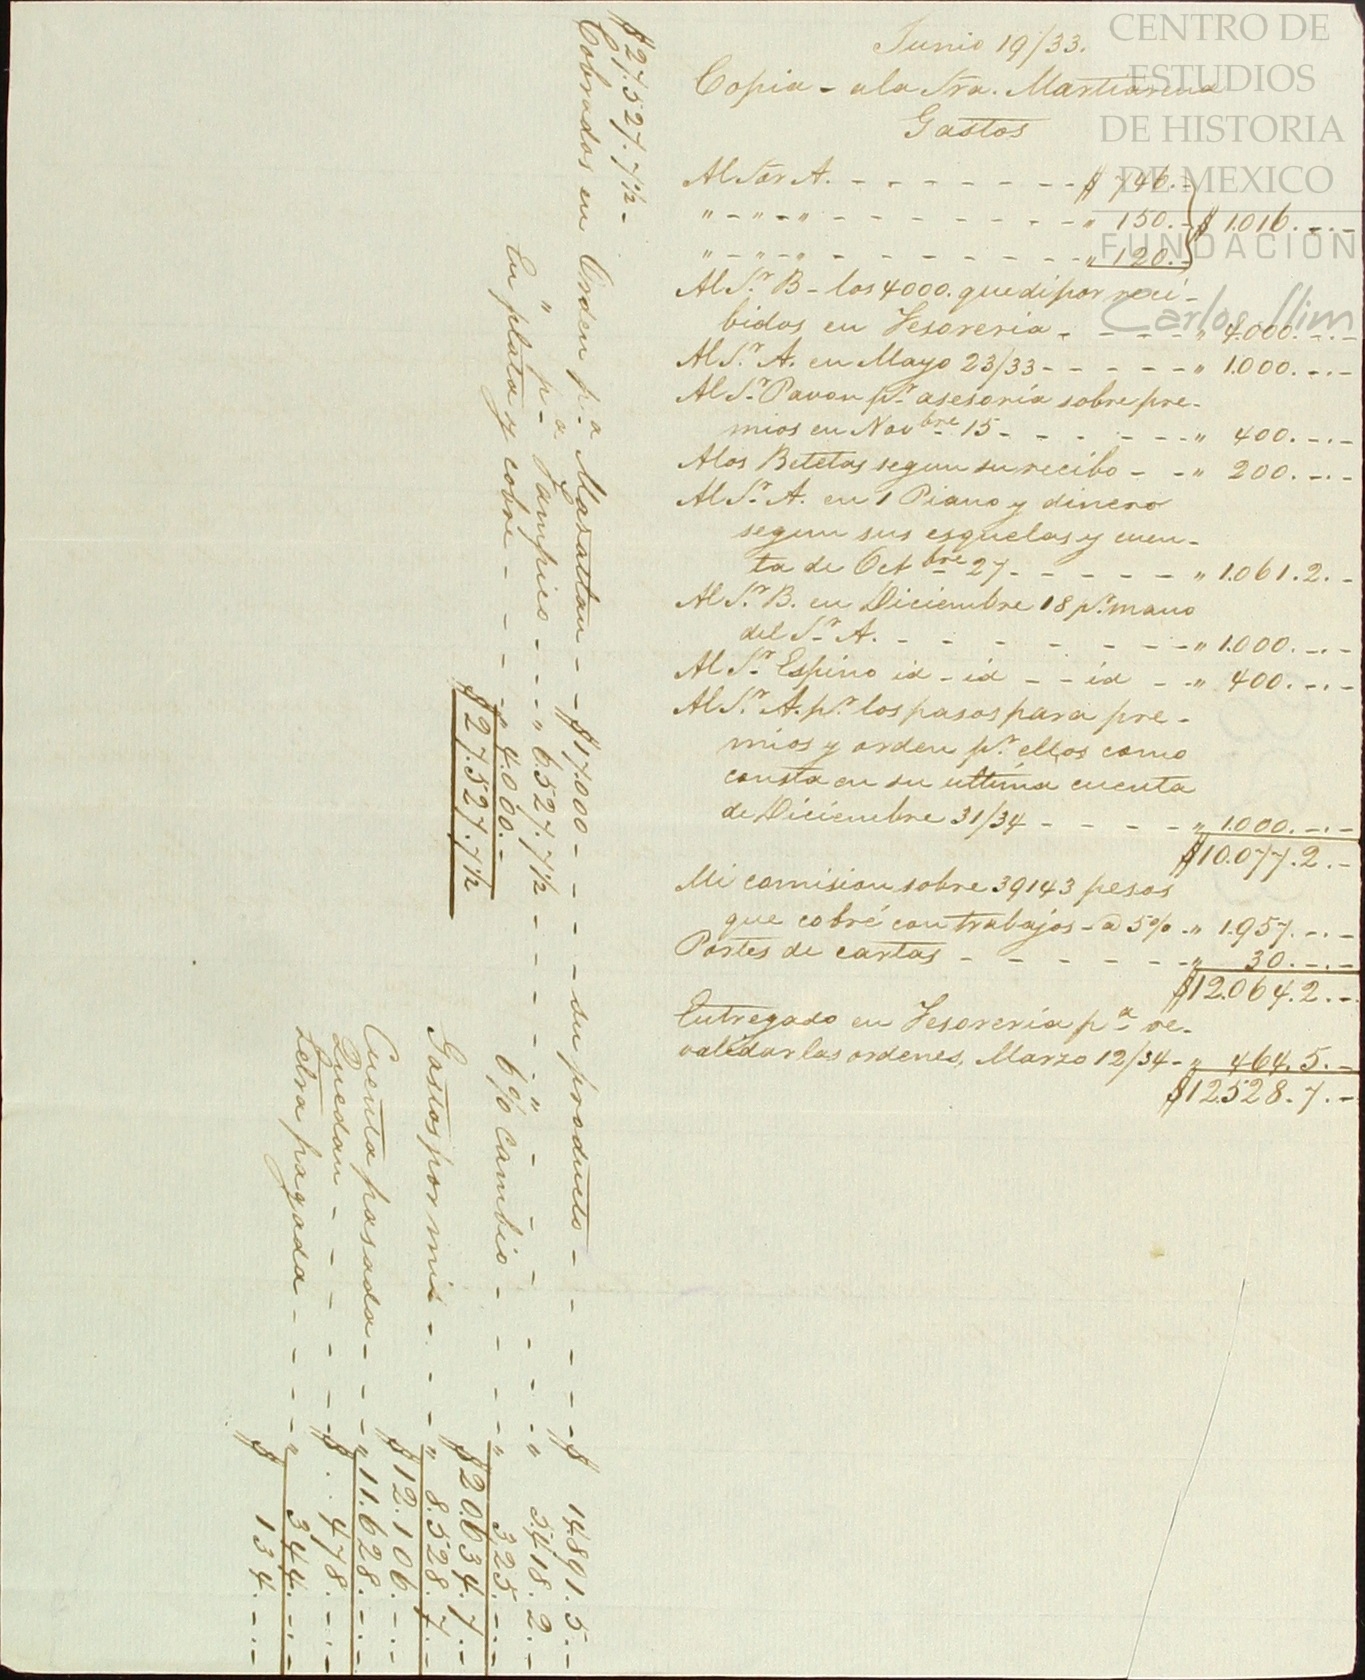 Junio 19/33.
Copia - a la Sra. Martiarena
Gastos
Al Sor A. - - - - - - - - $ 746. -
" - " - " - - - - - - - - " 150. - $ 1.016. - . -
" - " - " - - - - - - - - " 120. -
Al Sr. B - los 4000. que di por reci-
bidos en Tesoreria - - - - " 4.000. - . -
Al Sr. A. en Mayo 23/33 - - - - - " 1.000. - . -
Al Sr. Pavon pr. asesoría sobre pre-
mios en Novbre 15 - - - - - - " 400. - . -
A los Betetas segun su recibo - - " 200. - . -
Al Sr. A. en 1 Piano y dinero
segun sus esquelas y cuen-
ta de Octbre 27 - - - - - " 1.061. 2. -
Al Sr. B. en Diciembre 18 pr. mano
del Sr. A. - - - - - - - " 1.000. - . -
Al Sr. Espino id - id - - id - - " 400. - . -
Al Sr. A. pr. los pasos para pre-
mios y orden pr. ellos como
consta en su ultima cuenta
de Diciembre 31/34 - - - - " 1.000. - . -
$ 10.077. 2. -
Mi comision sobre 39143 pesos
que cobré con trabajos - a 5% - " 1.957. - . -
Portes de cartas - - - - - - " 30. - . -
$ 12.064. 2. -
Entregado en Tesoreria pa. re-
validar las ordenes, Marzo 12/34 - " 464. 5. -
$ 12.528. 7. -
$ 27.527. 7 1/2 -
Cobrados en Orden pa. Masatlan - - $ 17.000 - - - - su producto - - - - $ 14.891. 5. -
" pa. Tampico - - - " 6.527. 7 1/2 - - - - " - - - - - " 5.418. 2. -
En plata y cobre - - - - " 4.000. - 6% cambio - - - - " 325. - . -
$ 27.527. 7 1/2 $ 20.634. 7. -
Gastos por mi - - - " 8.528. 7. -
$ 12.106. - . -
Cuenta pasada - - - " 11.628. - . -
Quedan - - - - - $ . . 478. - . -
Letra pagada - - - - " 344. - . -
$ 134. - . -
CENTRO DE
ESTUDIOS
DE HISTORIA
DE MEXICO
FUNDACIÓN
Carlos Slim